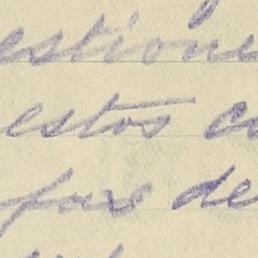 estione
estos co
fas de